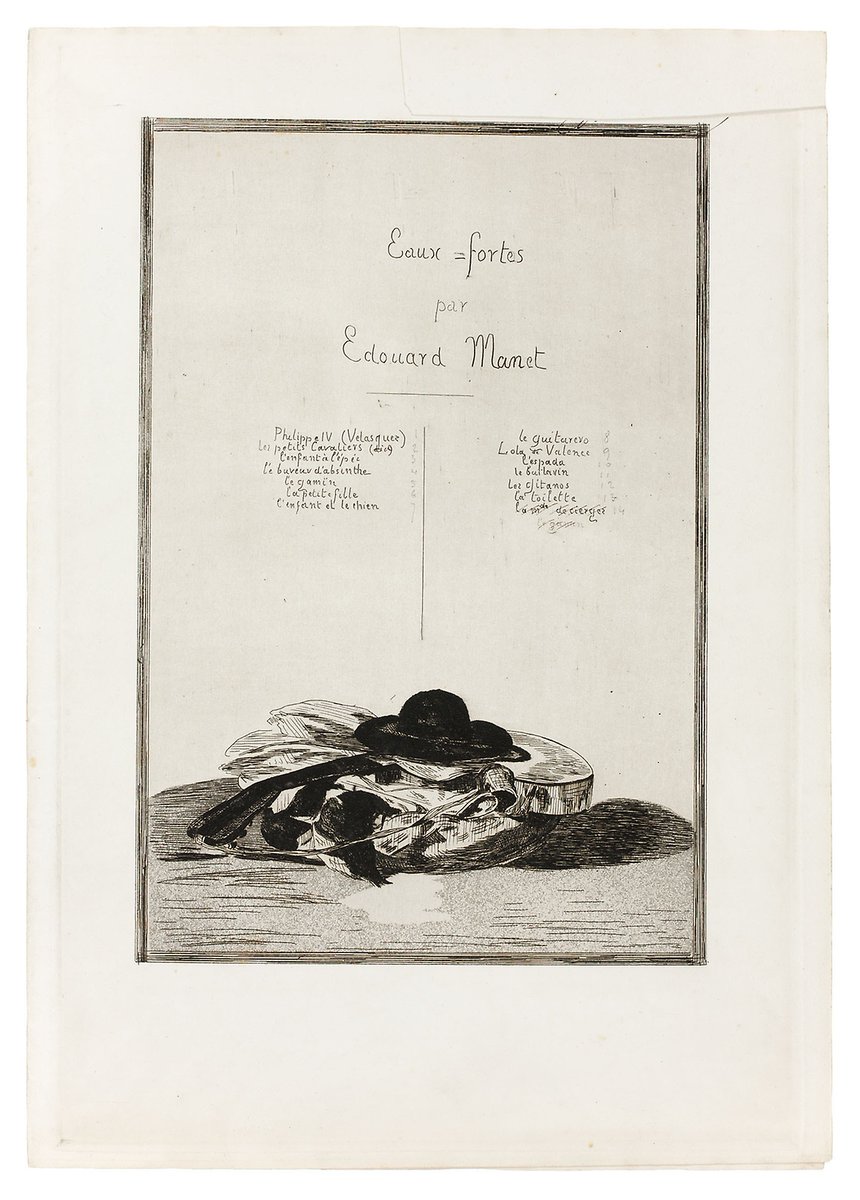 Eaux=fortes
par
Edouard Manet
Philippe IV (Velasquez) 1
les petits Cavaliers (dio) 2
l'enfant à l'épée 3
le buveur d'absinthe 4
le gamin 5
la petite fille 6
l'enfant et le chien 7
le guitarero 8
Lola de Valence 9
l'espada 10
le buveur d'eau 11
les gitanos 12
la toilette 13
la mde de cierges 14